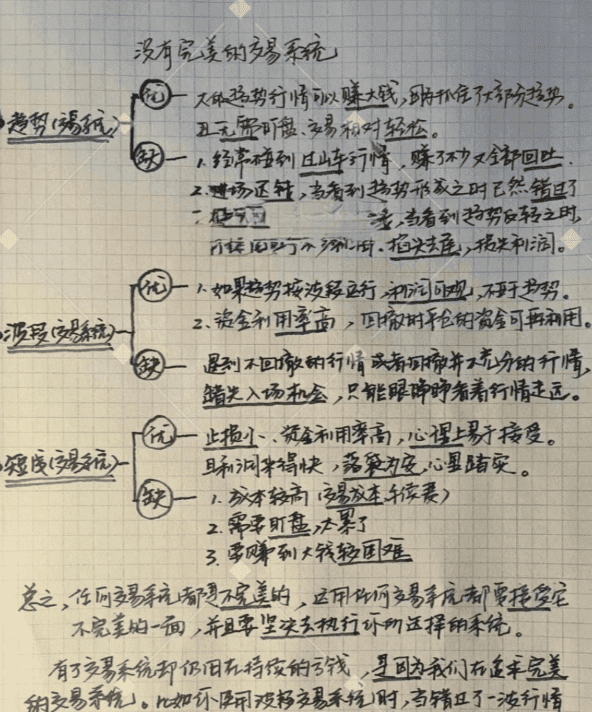 没有完美的交易系统
趋势交易系统
优 大的趋势行情可以赚大钱，即抓住了大部分趋势。
且无需盯盘、交易相对轻松。
缺 1. 经常碰到过山车行情，赚了不少又全部回吐.
2. 进场迟钝，当看到趋势形成之时已然错过了
，当看到趋势反转之时，
掐头去尾，损失利润。
波段交易系统
优 1. 如果趋势按波段运行，利润可观，不亚于趋势。
2. 资金利用率高，回撤时平仓的资金可再利用。
缺 遇到不回撤的行情或者回撤并不充分的行情，
错失入场机会，只能眼睁睁看着行情走远。
短线交易系统
优 止损小、资金利用率高，心理上易于接受。
且利润来得快，落袋为安，心里踏实。
缺 1. 成本较高（交易成本手续费）
2. 需要盯盘，太累了
3. 要赚到大钱较困难
总之，任何交易系统都是不完美的，运用任何交易系统都要接受它
不完美的一面，并且要坚决去执行你所选择的系统。
有了交易系统却仍旧在持续的亏钱，是因为我们在追求完美
的交易系统。比如你使用波段交易系统时，当错过了一波行情